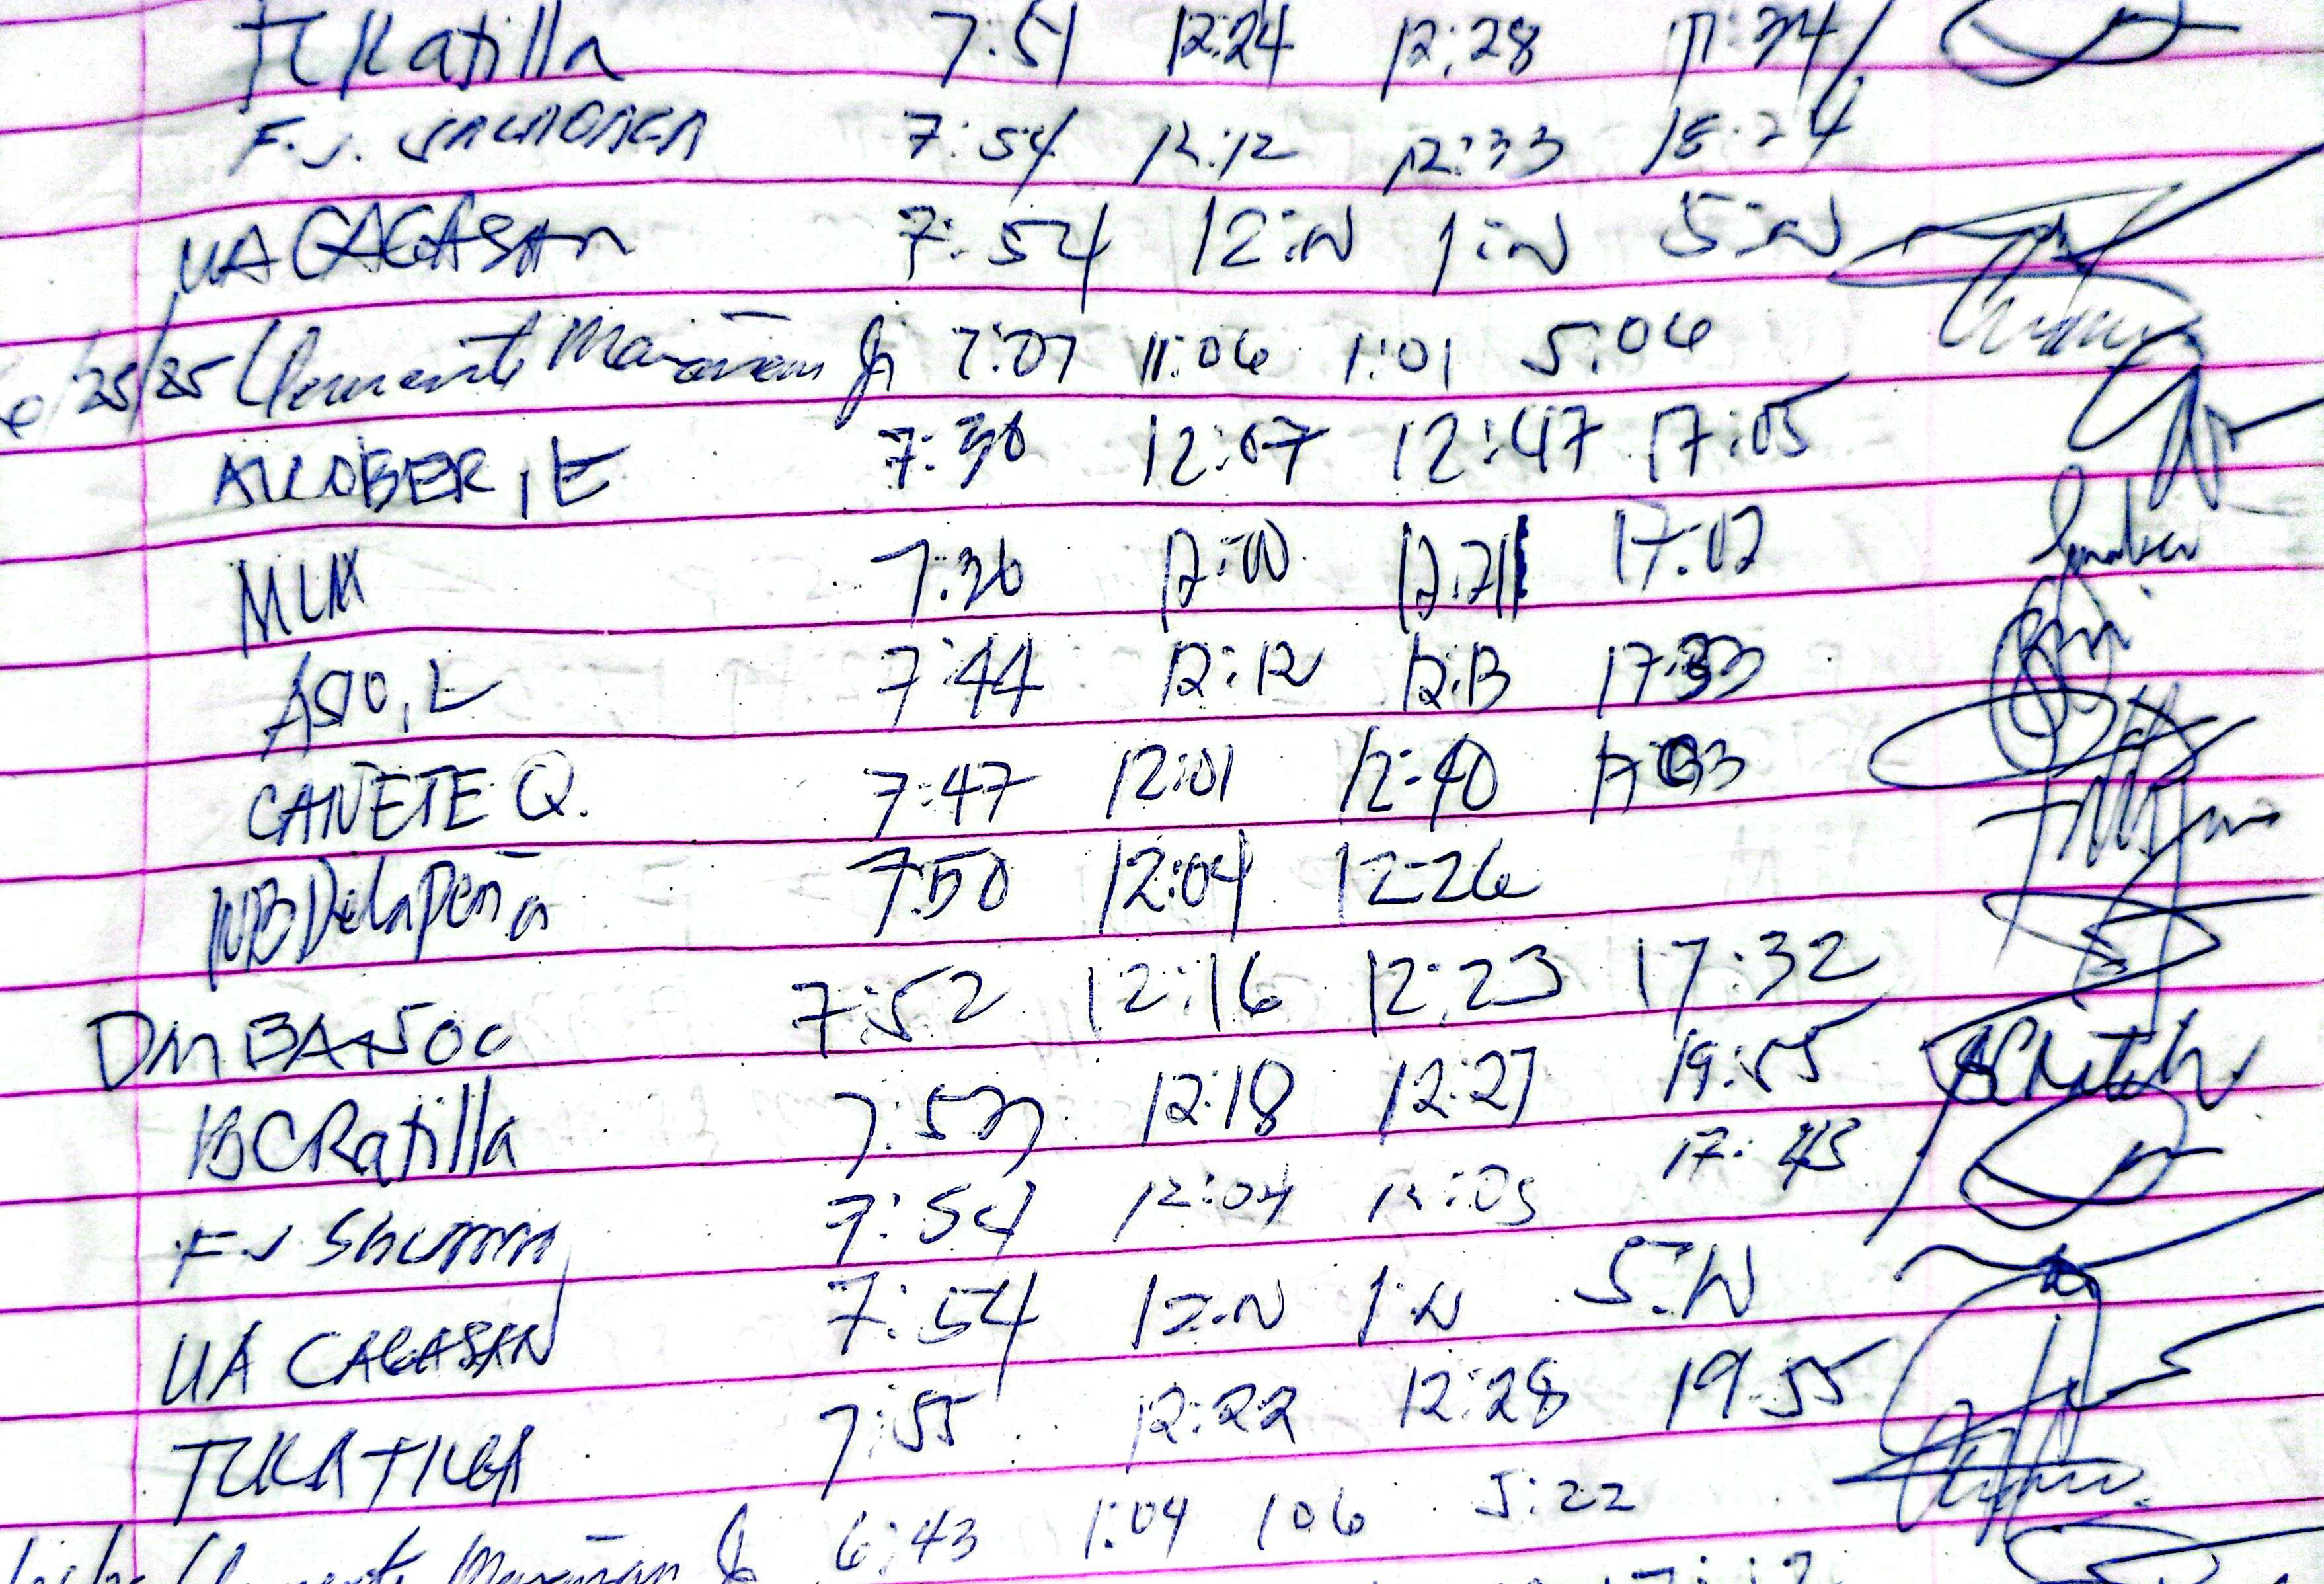 TCRatilla 7:51 12:24 12:28
F.J. 7:54 12:12 12:33 18:24
UA CAGASAN 7:54 12:N 1:N 5:N
6/25/25 Clemente Jr 7:07 11:06 1:01 5:06
ALCOBER, E 7:38 12:07 12:47 17:05
MLM 7:36 12:00 12:21 17:02
ASIO, L 7:44 12:12 12:13 17:33
CAÑETE Q. 7:47 12:01 12:40 17:03
NB DelaPeña 7:50 12:04 12:26
DM BAÑOC 7:52 12:16 12:23 17:32
BCRatilla 7:53 12:18 12:27 19:55
F.J 7:54 12:04 12:05 17:43
UA CAGASAN 7:54 12:N 1:N 5:N
TCRATILLA 7:55 12:22 12:28 19:55
Clemente Jr 6:43 1:04 106 5:22
17:12